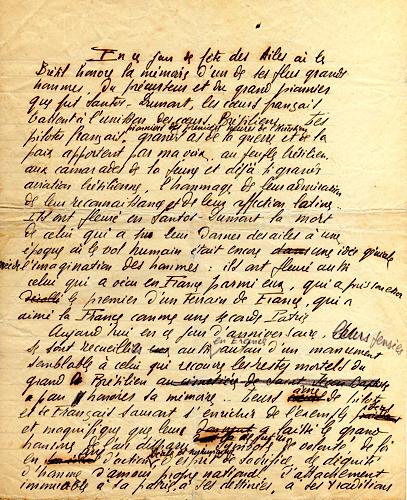 En ce jour de fête des Ailes où le
Brésil honore la mémoire d'un de ses plus grands
hommes. Du précurseur et du grand pionnier
que fut Santos-Dumont, les cœurs français
battent à l'unisson des cœurs Brésiliens. Les
pionniers des premières heures de l'Aviation
pilotes français, grands as de la guerre et de la
paix apportent par ma voix, au peuple brésilien,
aux camarades de la jeune et déjà si grande
aviation brésilienne, l'hommage de leur admiration
de leur reconnaissance et de leur affection latine.
Ils ont pleuré en Santos-Dumont la mort
de celui qui a pu leur donner des ailes à une
époque où le vol humain était encore dans une idée
l'imagination des hommes : ils ont pleuré aussi
celui qui a vécu en France parmi eux, qui a pris son essor
le premier d'un terrain de France, qui a
aimé la France comme une seconde Patrie.
Aujourd'hui en ce jour d'anniversaire, leurs pensées
en France
se sont recueillies autour d'un monument
semblable à celui qui recouvre les restes mortels du
grand Brésilien au cimetière de Saint Jean
pour honorer sa mémoire. Leurs de pilotes
et de Français savent s'enrichir de l'exemple
et magnifique que leur a laissé le grand
homme de l'air disparu, symbole de volonté, de foi
en d'action, d'esprit de sacrifice, de dignité
d'homme d'amour propre national d'attachement
immuable à la patrie, à ses destinées, à ses traditions